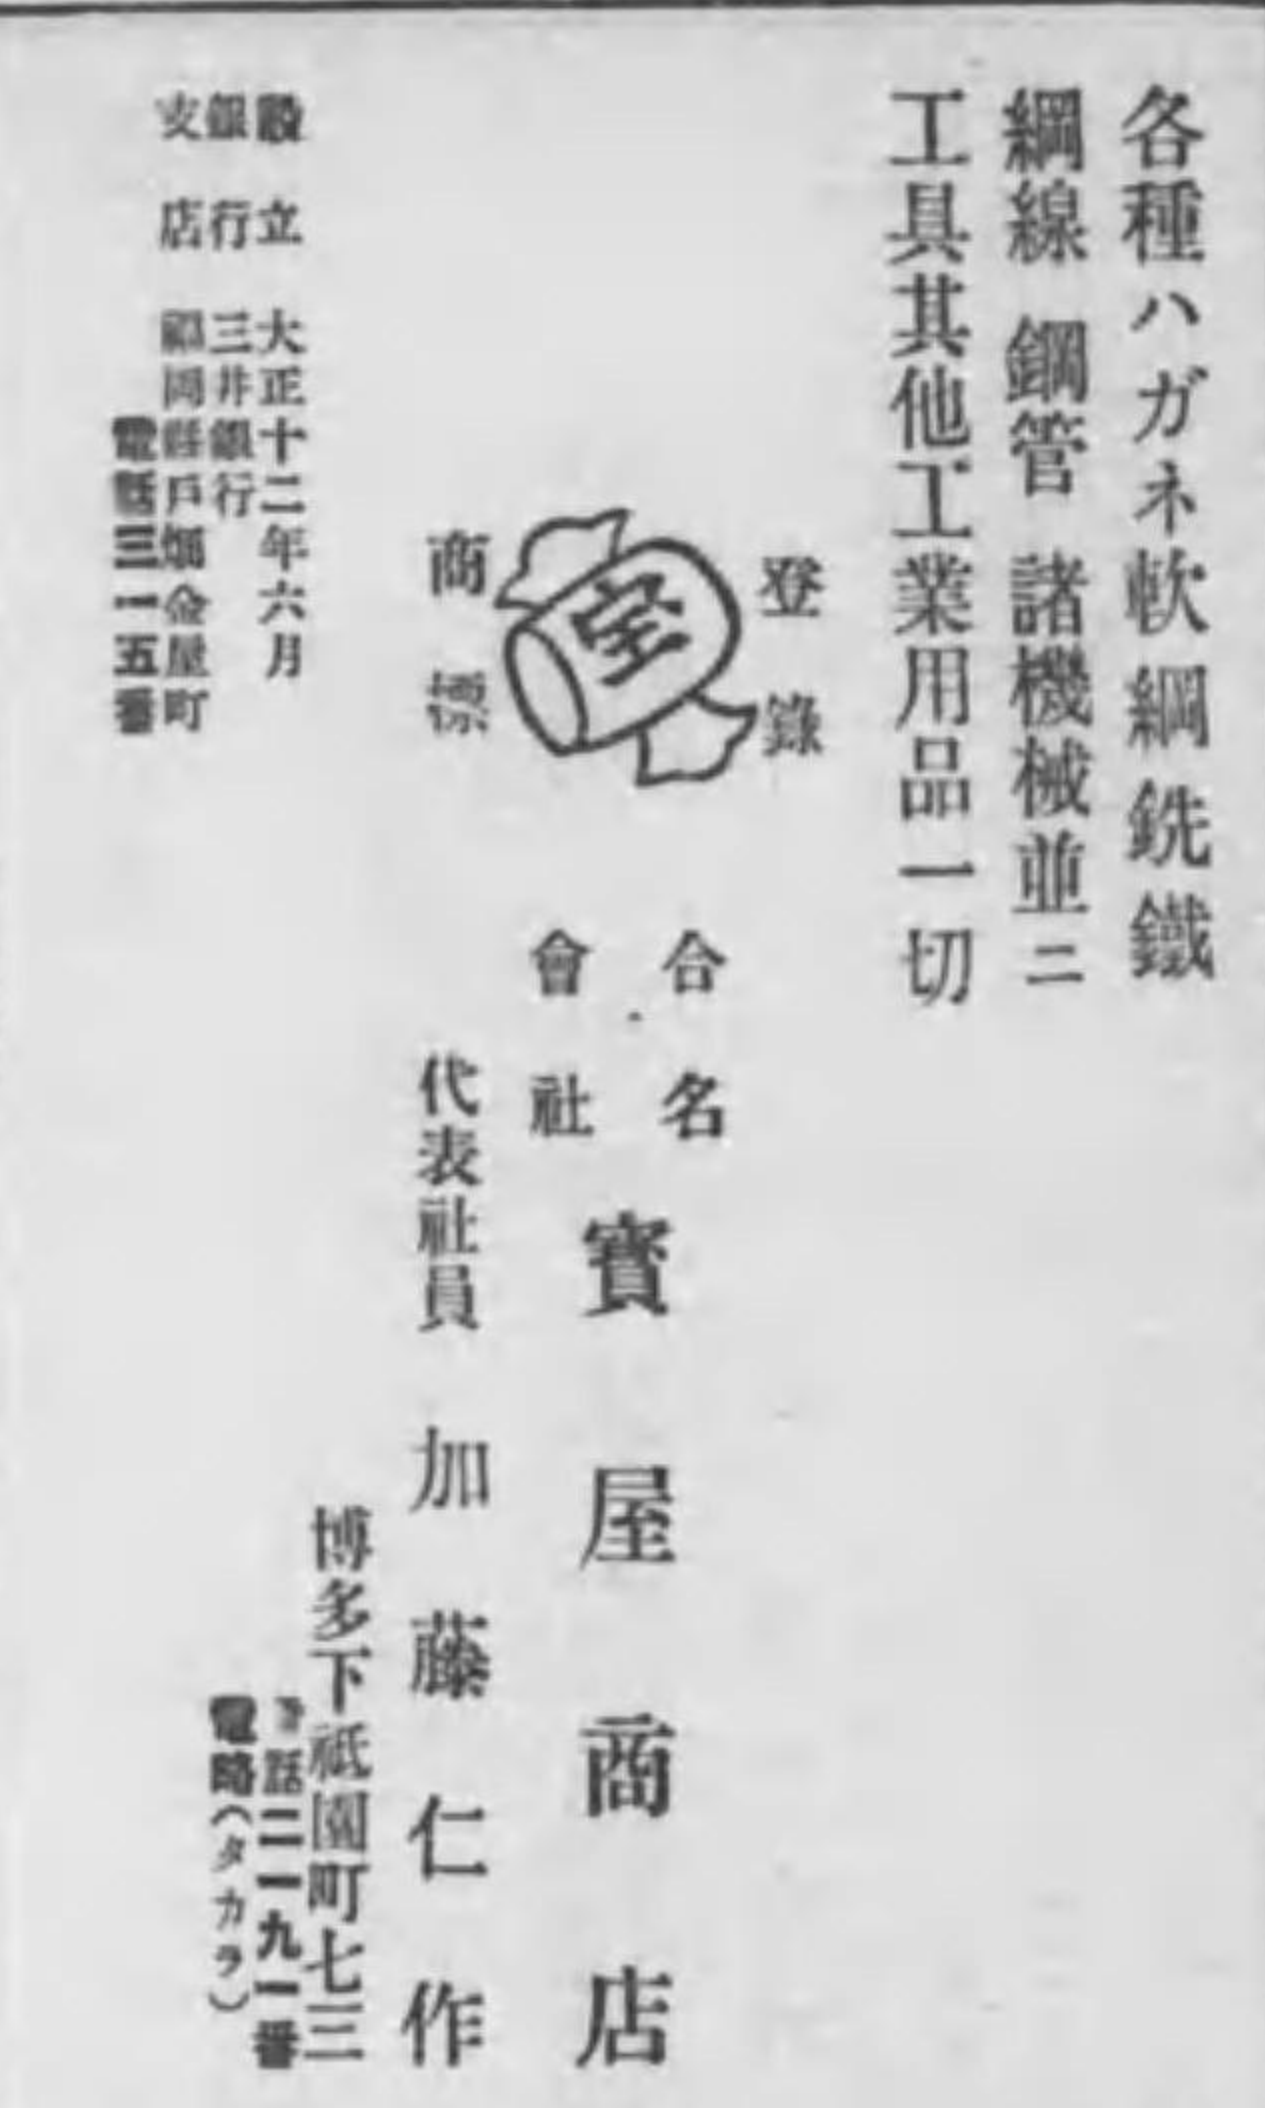 各種ハガネ軟綱銑鐵
綱線 鋼管 諸機械並ニ
工具其他工業用品一切
登錄
商標
宝
合名
會社
寳屋商店
代表社員 加藤仁作
博多下祇園町七三
電話二一九一番
電略(タカラ)
設立 大正十二年六月
銀行 三井銀行
支店 福岡縣戶畑金屋町
電話三一五番